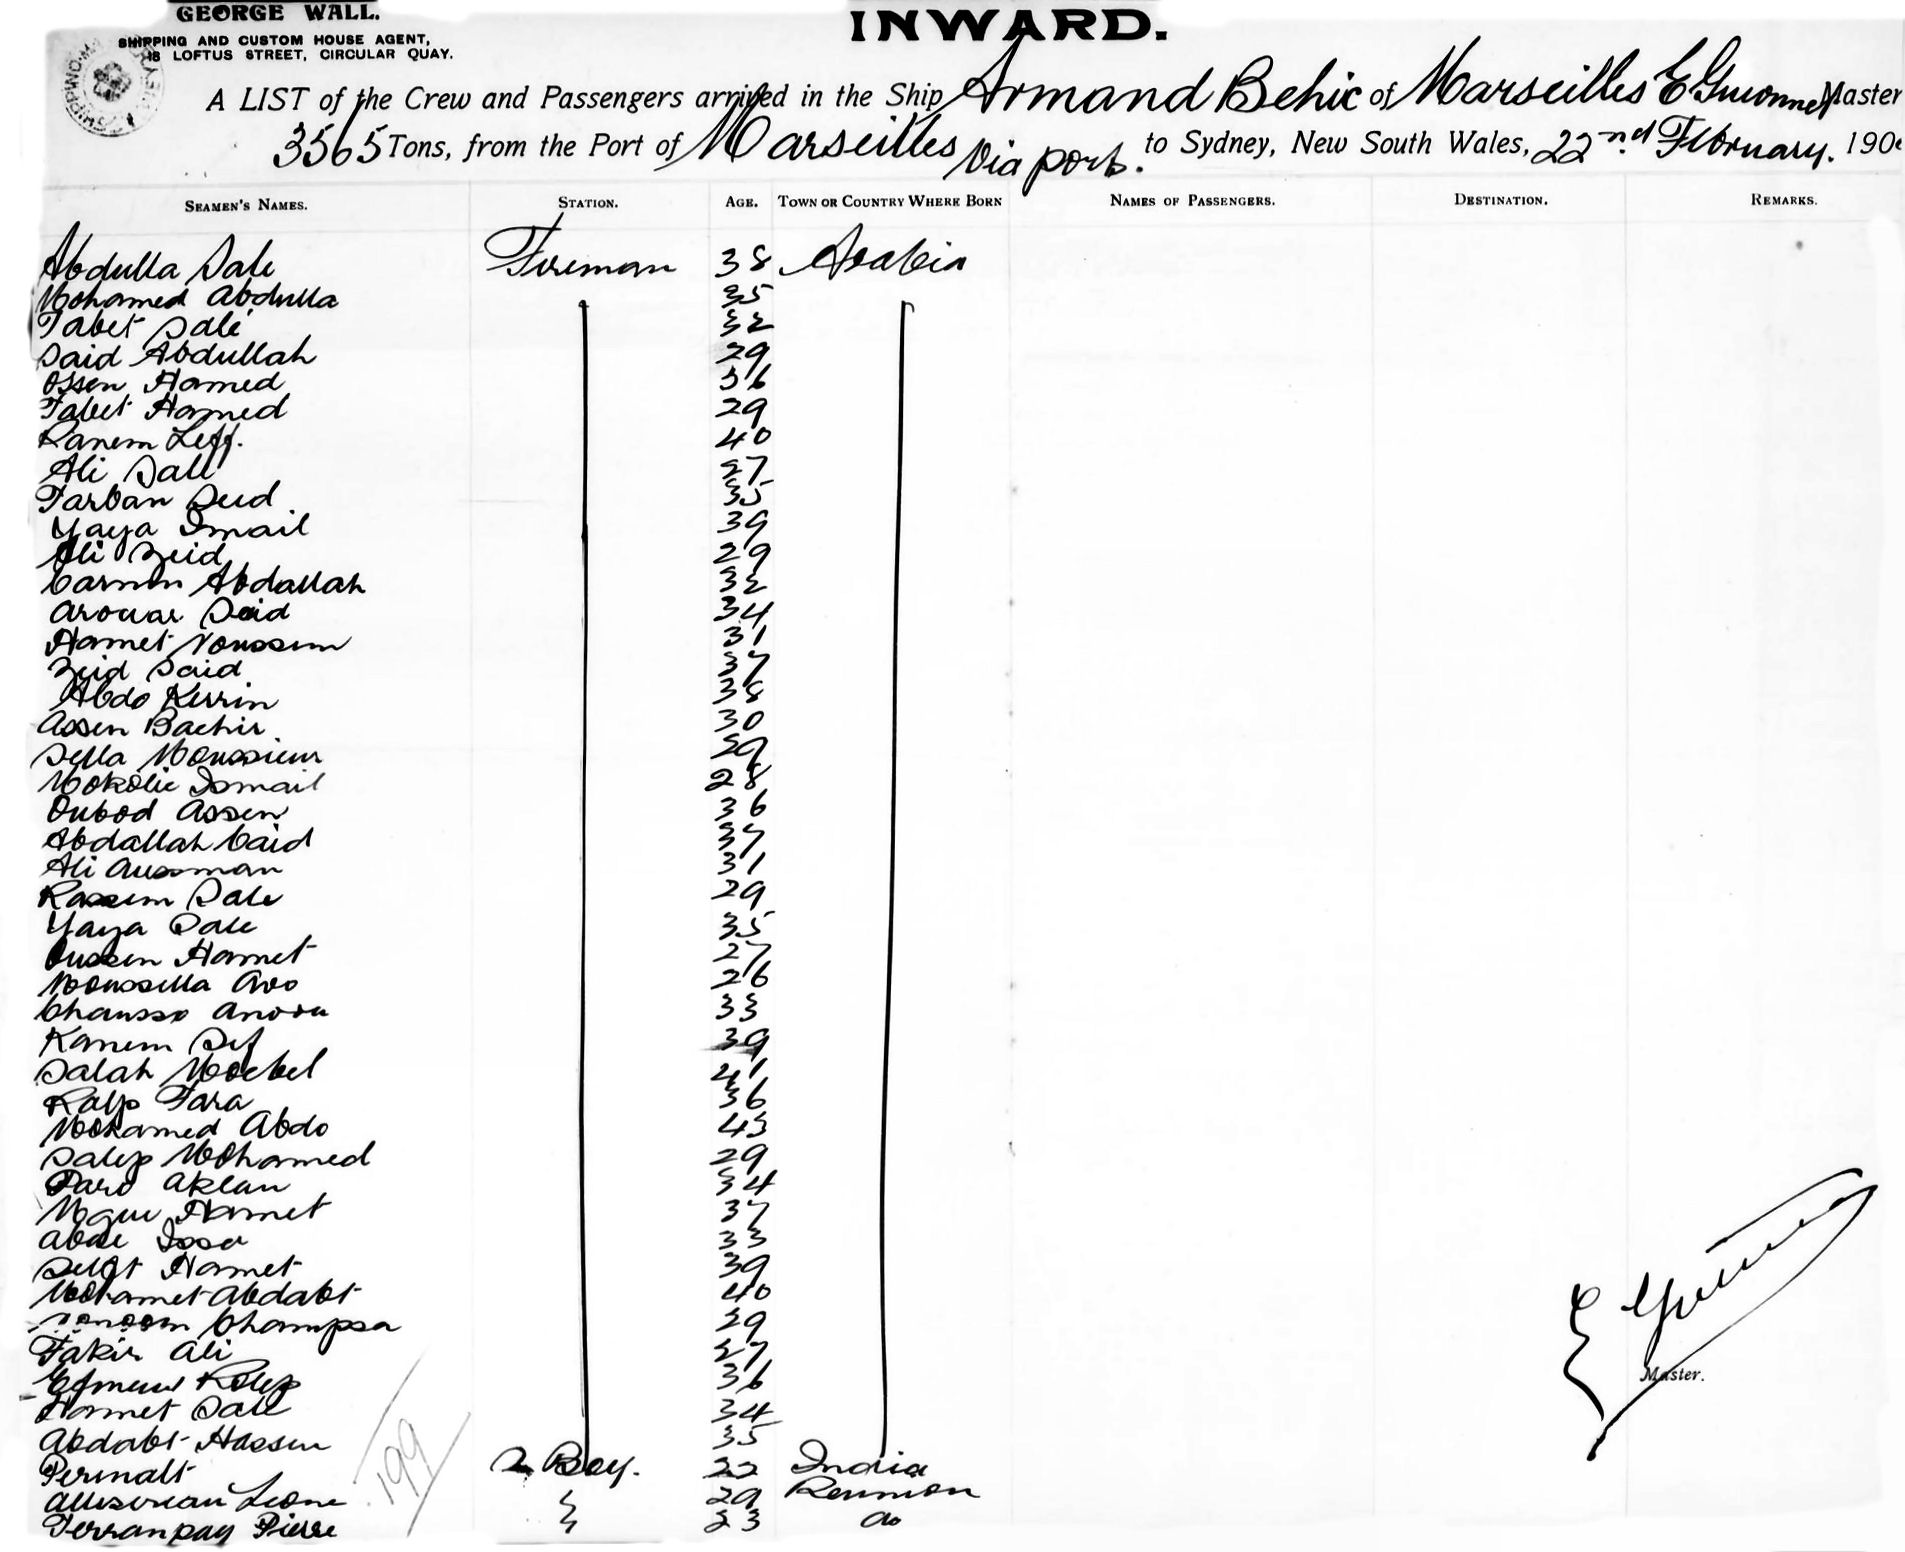 GEORGE WALL.
SHIPPING AND CUSTOM HOUSE AGENT,
LOFTUS STREET, CIRCULAR QUAY.
INWARD.
A LIST of the Crew and Passengers arrived in the Ship Armand Behic of Marseilles E Master
3565 Tons, from the Port of Marseilles via ports. to Sydney, New South Wales, 22nd February. 190
SEAMEN'S NAMES. STATION. AGE. TOWN OR COUNTRY WHERE BORN NAMES OF PASSENGERS. DESTINATION. REMARKS.
Abdulla Sale Fireman 38 Arabia
Mohamed Abdulla 35
Tabet Salé 32
Said Abdullah 29
Ossen Hamed 36
Tabet Hamed 29
Kanem Leff. 40
Ali Sale 27
Tarban Seid 35
Yaya Imail 39
Ali Zeid 29
Abdallah 32
Said 34
Hamet 31
Zeid Said 37
Abdo Kerrin 38
Assen Bachir 30
Sella 29
Ismail 28
Oubod Assen 36
Abdallah Caid 37
Ali Aussman 31
Kassem Sale 29
Yaya Sale 35
Oussen Hamet 27
Moussella Avo 26
Chausso 33
Kanem Sef 39
Salah 41
Kalp Fara 36
Mohamed Abdo 43
Salep Mohamed 29
Aklan 34
Hamet 37
Abde Issa 33
Hamet 39
Mohamet Abdabt 40
Champsa 29
Fakir Ali 27
36
Hamet Sale 34
Abdabt Hassen 35
Perinalt Boy. 22 India
Leone 29 Reunion
Terranpay Pierre 23 do
199
E
Master.